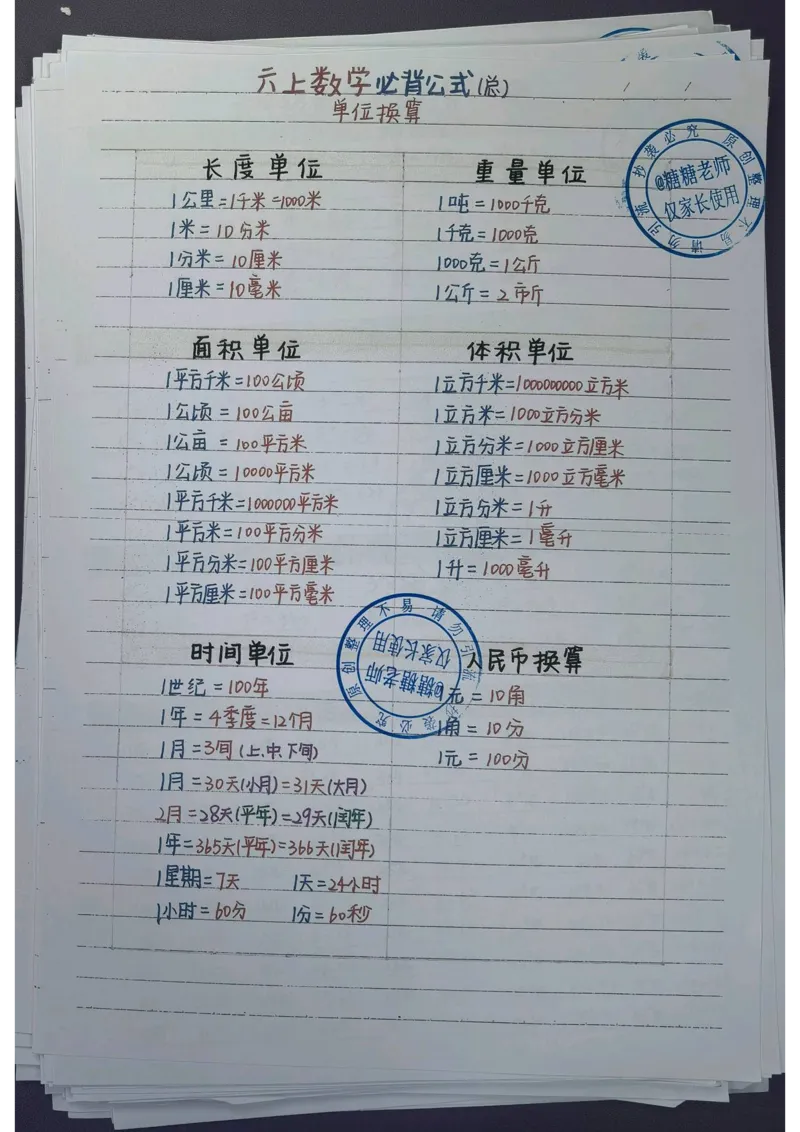 六上数学必背公式(总)
单位换算
长度单位
1公里=1千米=1000米
1米=10分米
1分米=10厘米
1厘米=10毫米
重量单位
1吨=1000千克
1千克=1000克
1000克=1公斤
1公斤=2市斤
面积单位
1平方千米=100公顷
1公顷=100公亩
1公亩=100平方米
1公顷=10000平方米
1平方千米=1000000平方米
1平方米=100平方分米
1平方分米=100平方厘米
1平方厘米=100平方毫米
体积单位
1立方千米=1000000000立方米
1立方米=1000立方分米
1立方分米=1000立方厘米
1立方厘米=1000立方毫米
1立方分米=1升
1立方厘米=1毫升
1升=1000毫升
时间单位
1世纪=100年
1年=4季度=12个月
1月=3旬(上、中、下旬)
1月=30天(小月)=31天(大月)
2月=28天(平年)=29天(闰年)
1年=365天(平年)=366天(闰年)
1星期=7天 1天=24小时
1小时=60分 1分=60秒
人民币换算
1元=10角
1角=10分
1元=100分
原创整理不易 请勿引流 抄袭必究
@糖糖老师
仅家长使用
原创整理不易 请勿引流
必究
@糖糖老师
仅家长使用